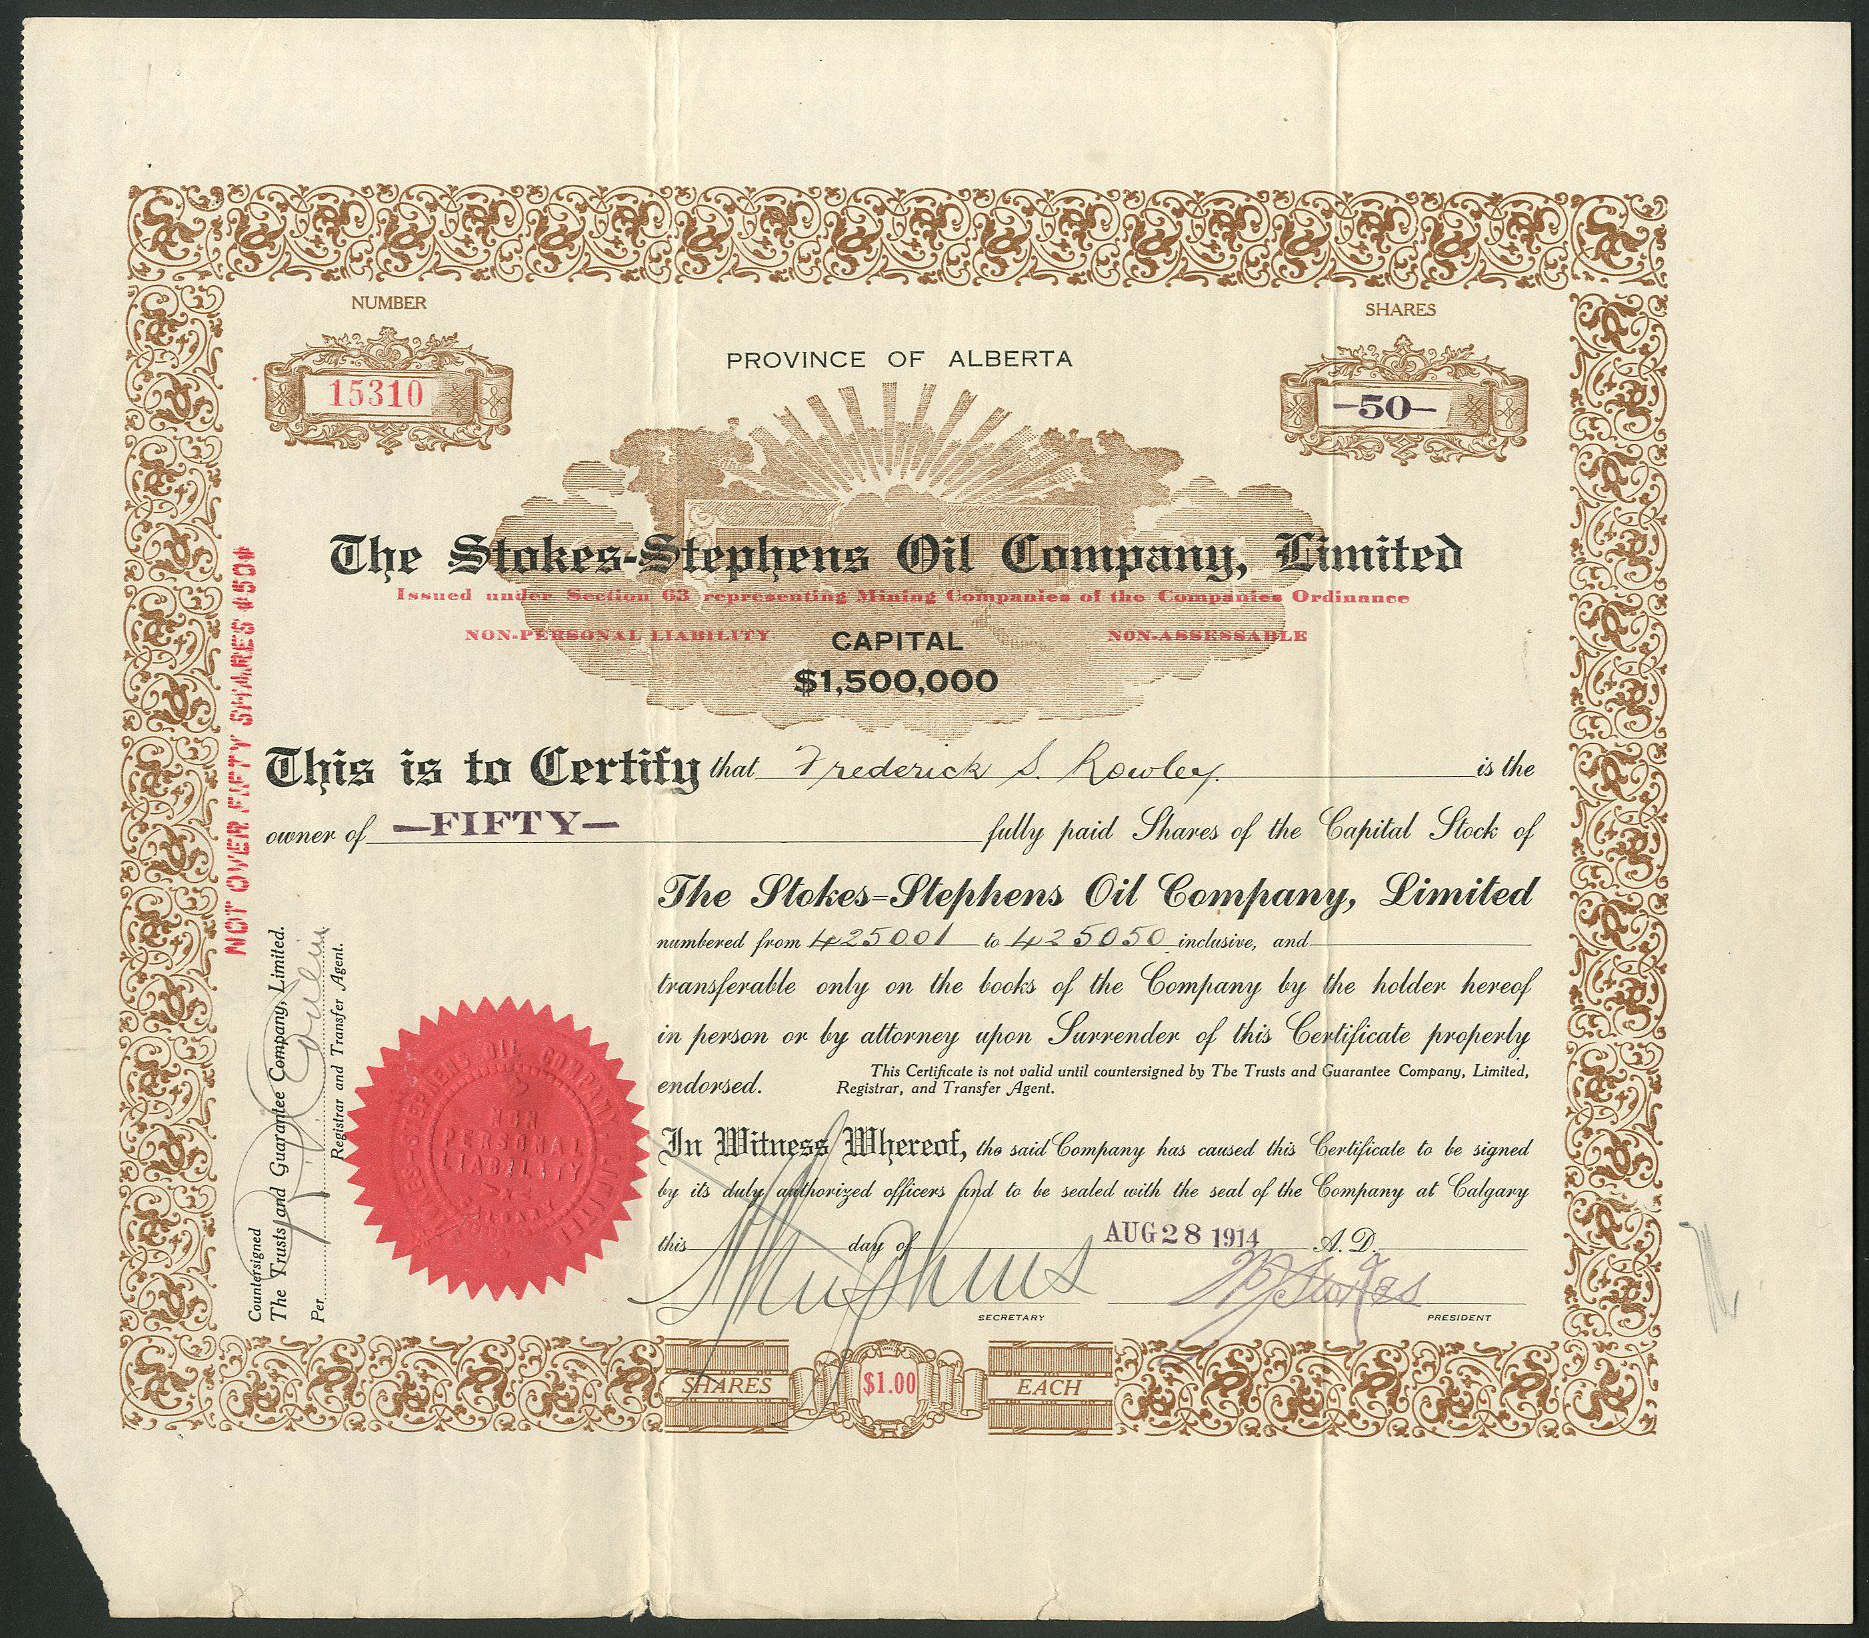 NUMBER
15310
SHARES
-50-
PROVINCE OF ALBERTA
The Stokes-Stephens Oil Company, Limited
Issued under Section 63 representing Mining Companies of the Companies Ordinance
NON-PERSONAL LIABILITY
CAPITAL
NON-ASSESSABLE
$1,500,000
This is to Certify that Frederick S. Rowley. is the
owner of —FIFTY— fully paid Shares of the Capital Stock of
The Stokes=Stephens Oil Company, Limited
numbered from 425001 to 425050 inclusive, and
transferable only on the books of the Company by the holder hereof
in person or by attorney upon Surrender of this Certificate properly
endorsed. This Certificate is not valid until countersigned by The Trusts and Guarantee Company, Limited,
Registrar, and Transfer Agent.
In Witness Whereof, the said Company has caused this Certificate to be signed
by its duly authorized officers and to be sealed with the seal of the Company at Calgary
this day of AUG 28 1914 A.D.
SECRETARY
PRESIDENT
SHARES $1.00 EACH
NOT OVER FIFTY SHARES $50$
Countersigned
The Trusts and Guarantee Company, Limited.
Per
Registrar and Transfer Agent.
STEPHENS OIL COMPANY
NON
PERSONAL
LIABILITY